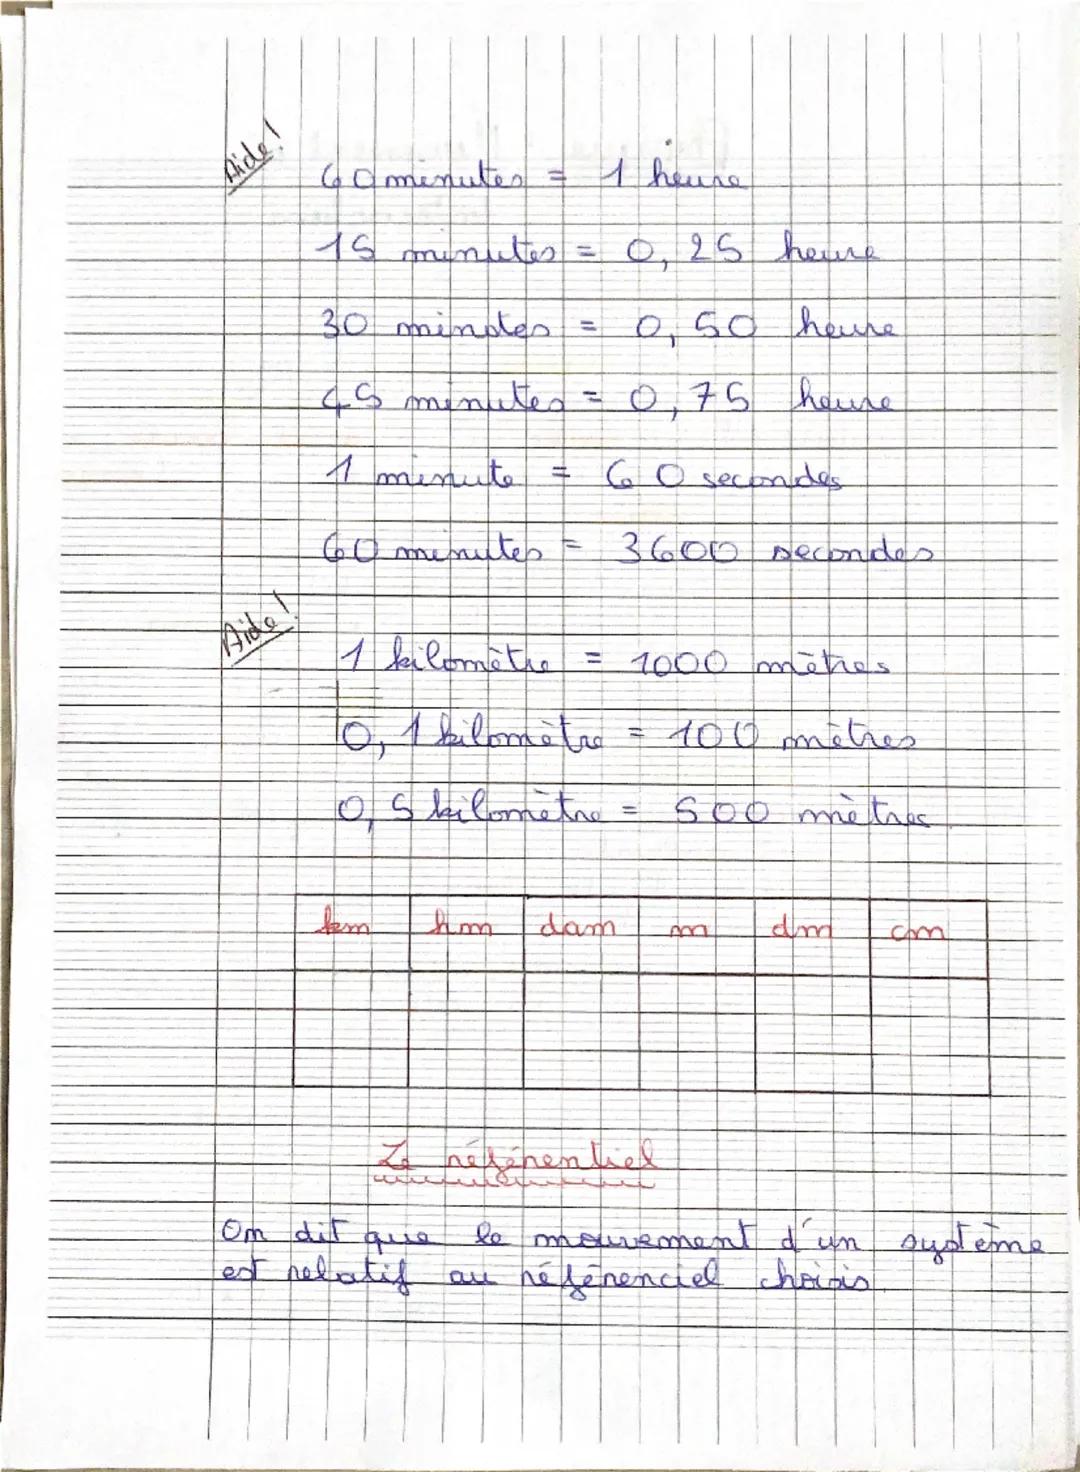 Aide!
60 minutes = 1 heure
15 minutes = 0,25 heure
30 minutes = 0,50 heure
45 minutes = 0,75 heure
1 minute = 60 secondes
60 minutes = 3600 secondes
Aide!
1 kilomètre = 1000 mètres
0,1 kilomètre = 100 mètres
0,5 kilomètre = 500 mètres
km hm dam m dm cm
Le référentiel
On dit que le mouvement d'un système
est relatif au référenciel choisis